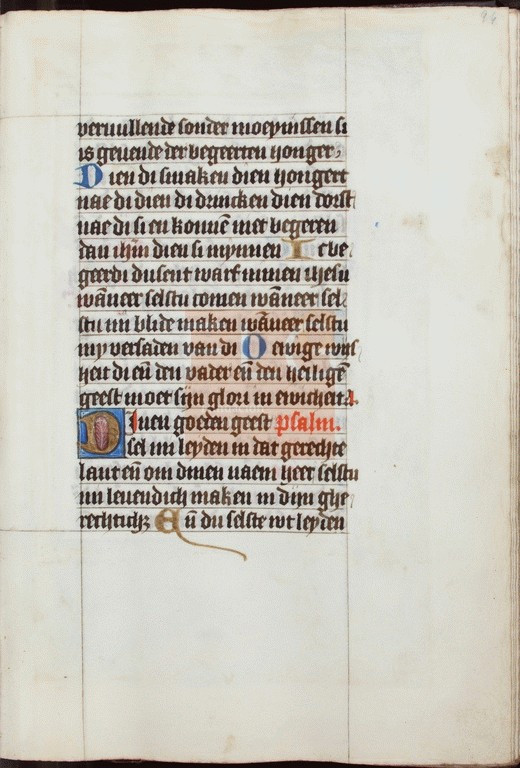 94
vervullende sonder moeynissen si
is gevende der begeerten honger,
Dien di smaken dien hongert
nae di dien di drincken dien dorst
nae di si en konnē niet begeren
dan ihm̄ dien si mynnen Ic be
geer di dusent warf mijnen ihesu
wāneer selstu comen wāneer sel
stu mi blide maken wāneer selstu
my versaden van di O ewige wijs
heit di eñ den vader eñ den heiligē
geest moet sijn glori in ewicheit A.
Dinen goeden geest psalm.
sel mi leyden in dat gerechte
lant eñ om dinen naem heer selstu
mi levendich maken in dijn ghe
rechtich; Eñ du selste wt leyden